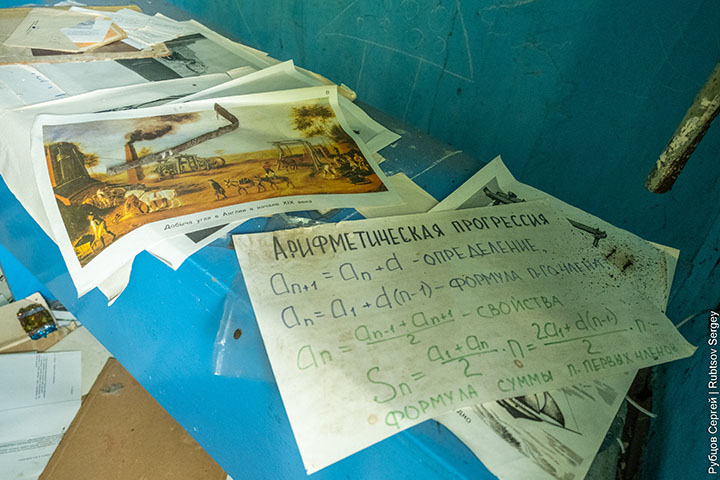 Добыча угля в Англии в начале XIX века
Арифметическая прогрессия
aₙ₊₁ = aₙ + d - определение
aₙ = a₁ + d(n-1) - формула n-го члена
aₙ = (aₙ₋₁ + aₙ₊₁)/2 - свойства
Sₙ = (a₁ + aₙ)/2 · n = (2a₁ + d(n-1))/2 · n -
формула суммы n первых членов
Рубцов Сергей | Rubtsov Sergey